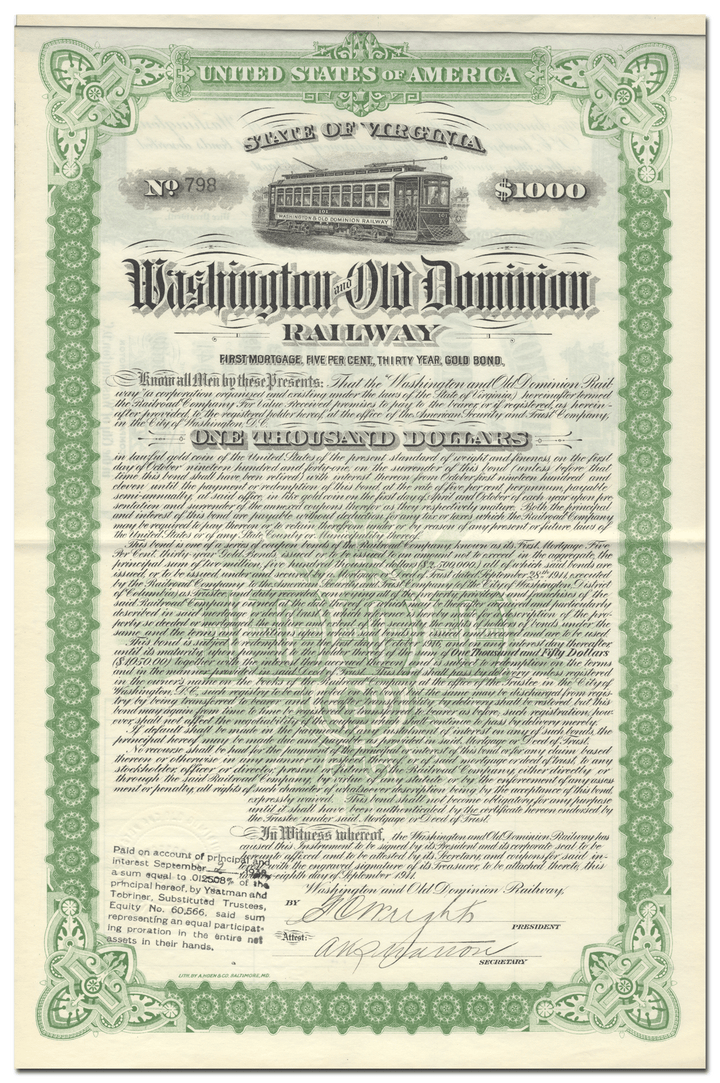 UNITED STATES OF AMERICA
STATE OF VIRGINIA
No 798
$1000
WASHINGTON & OLD DOMINION RAILWAY
Washington and Old Dominion
RAILWAY
FIRST MORTGAGE, FIVE PER CENT, THIRTY YEAR, GOLD BOND.
Know all Men by these Presents: That the "Washington and Old Dominion Rail-
way" (a corporation organized and existing under the laws of the State of Virginia) hereinafter termed
the Railroad Company For Value Received promises to pay to the bearer, or if registered, as herein-
after provided, to the registered holder hereof, at the office of the American Security and Trust Company,
in the City of Washington, D.C.
ONE THOUSAND DOLLARS
in lawful gold coin of the United States of the present standard of weight and fineness, on the first
day of October nineteen hundred and forty-one, on the surrender of this bond (unless before that
time this bond shall have been retired) with interest thereon from October first nineteen hundred and
eleven until the payment or redemption of this bond at the rate of five per cent per annum, payable
semi-annually, at said office, in like gold coin on the first day of April and October of each year upon pre-
sentation and surrender of the annexed coupons therefor as they respectively mature. Both the principal
and interest of this bond are payable without deduction for any tax or taxes which the Railroad Company
may be required to pay thereon or to retain therefrom under or by reason of any present or future laws of
the United States or of any State County or Municipality thereof.
This bond is one of a series of coupon bonds of the Railroad Company, known as its First Mortgage Five
Per Cent. thirty-year Gold Bonds, issued or to be issued to an amount not to exceed in the aggregate, the
principal sum of two million, five hundred thousand dollars ($2,500,000,) all of which said bonds are
issued, or to be issued under and secured by a Mortgage or Deed of Trust dated September 28th 1911, executed
by the Railroad Company to the American Security and Trust Company of the City of Washington, District
of Columbia, as Trustee, and duly recorded, conveying all of the property privileges and franchises of the
said Railroad Company owned at the date thereof or which may be thereafter acquired and particularly
described in said mortgage or deed of trust, to which reference is hereby made for a description of the pro-
perty so deeded or mortgaged, the nature and extent of the security, the rights of the holders of bonds under the
same, and the terms and conditions upon which said bonds are issued, secured and are to be used.
This bond is subject to redemption on October 1, 1916, and on any interest day thereafter
until its maturity, upon payment to the holder thereof of the sum of One Thousand and Fifty Dollars
($1050.00) together with the interest then accrued thereon, and is subject to redemption on the terms
and in the manner provided in said Deed of Trust. This bond shall pass by delivery unless registered
in the owner's name on the books of the Railroad Company at the office of the Trustee in the City of
Washington, D.C., such registry to be also noted on the bond, but the same may be discharged from regis-
try by being transferred to bearer and thereupon transferability by delivery shall be restored, but this
bond may again from time to time be registered, or transferred to bearer as before, such registration, how-
ever shall not affect the negotiability of the coupons which shall continue to pass by delivery merely.
If default shall be made in the payment of any installment of interest on any of such bonds, the
principal hereof may be made due and payable as provided in said Mortgage or Deed of Trust.
No recourse shall be had for the payment of the principal or interest of this bond, or for any claim based
thereon or otherwise in any manner in respect thereof, or of said mortgage or deed of trust, to any
stockholder, officer or director, present or future, of the Railroad Company, either directly or
through the said Railroad Company, by virtue of any statute or by the enforcement of any assess
ment or penalty, all rights of such character whatsoever description being by the acceptance of this bond,
expressly waived. This bond shall not become obligatory for any purpose
until it shall have been authenticated by the certificate hereon endorsed by
the Trustee under said Mortgage or Deed of Trust.
In Witness whereof, the Washington and Old Dominion Railway has
caused this Instrument to be signed by its President and its corporate seal to be
hereunto affixed and to be attested by its Secretary, and coupons for said in-
terest with the engraved signature of its Treasurer, to be attached thereto, this
twenty-eighth day of September 1911.
Paid on account of principal and
interest September 2
a sum equal to .012508% of the
principal hereof, by Yeatman and
Tebriner, Substituted Trustees,
Equity No. 60,566, said sum
representing an equal participat-
ing proration in the entire net
assets in their hands.
Washington and Old Dominion Railway,
BY
PRESIDENT
Attest:
SECRETARY
LITH. BY A. HOEN & CO. BALTIMORE, MD.